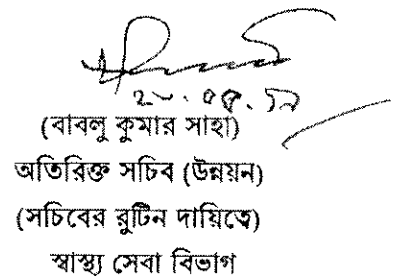 (বাবলু কুমার সাহা)
অতিরিক্ত সচিব (উন্নয়ন)
(সচিবের রুটিন দায়িত্বে)
স্বাস্থ্য সেবা বিভাগ